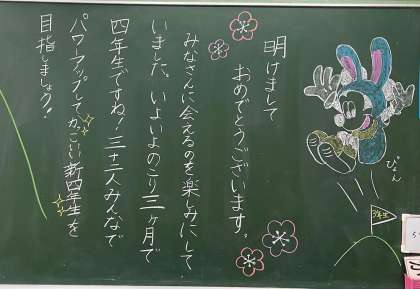 明けまして
おめでとうございます。
みなさんに会えるのを楽しみにして
いました。いよいよのこり三ヶ月で
四年生ですね！三十二人みんなで
パワーアップしてかっこいい新四年生を
目指しましょう！
ぴょん